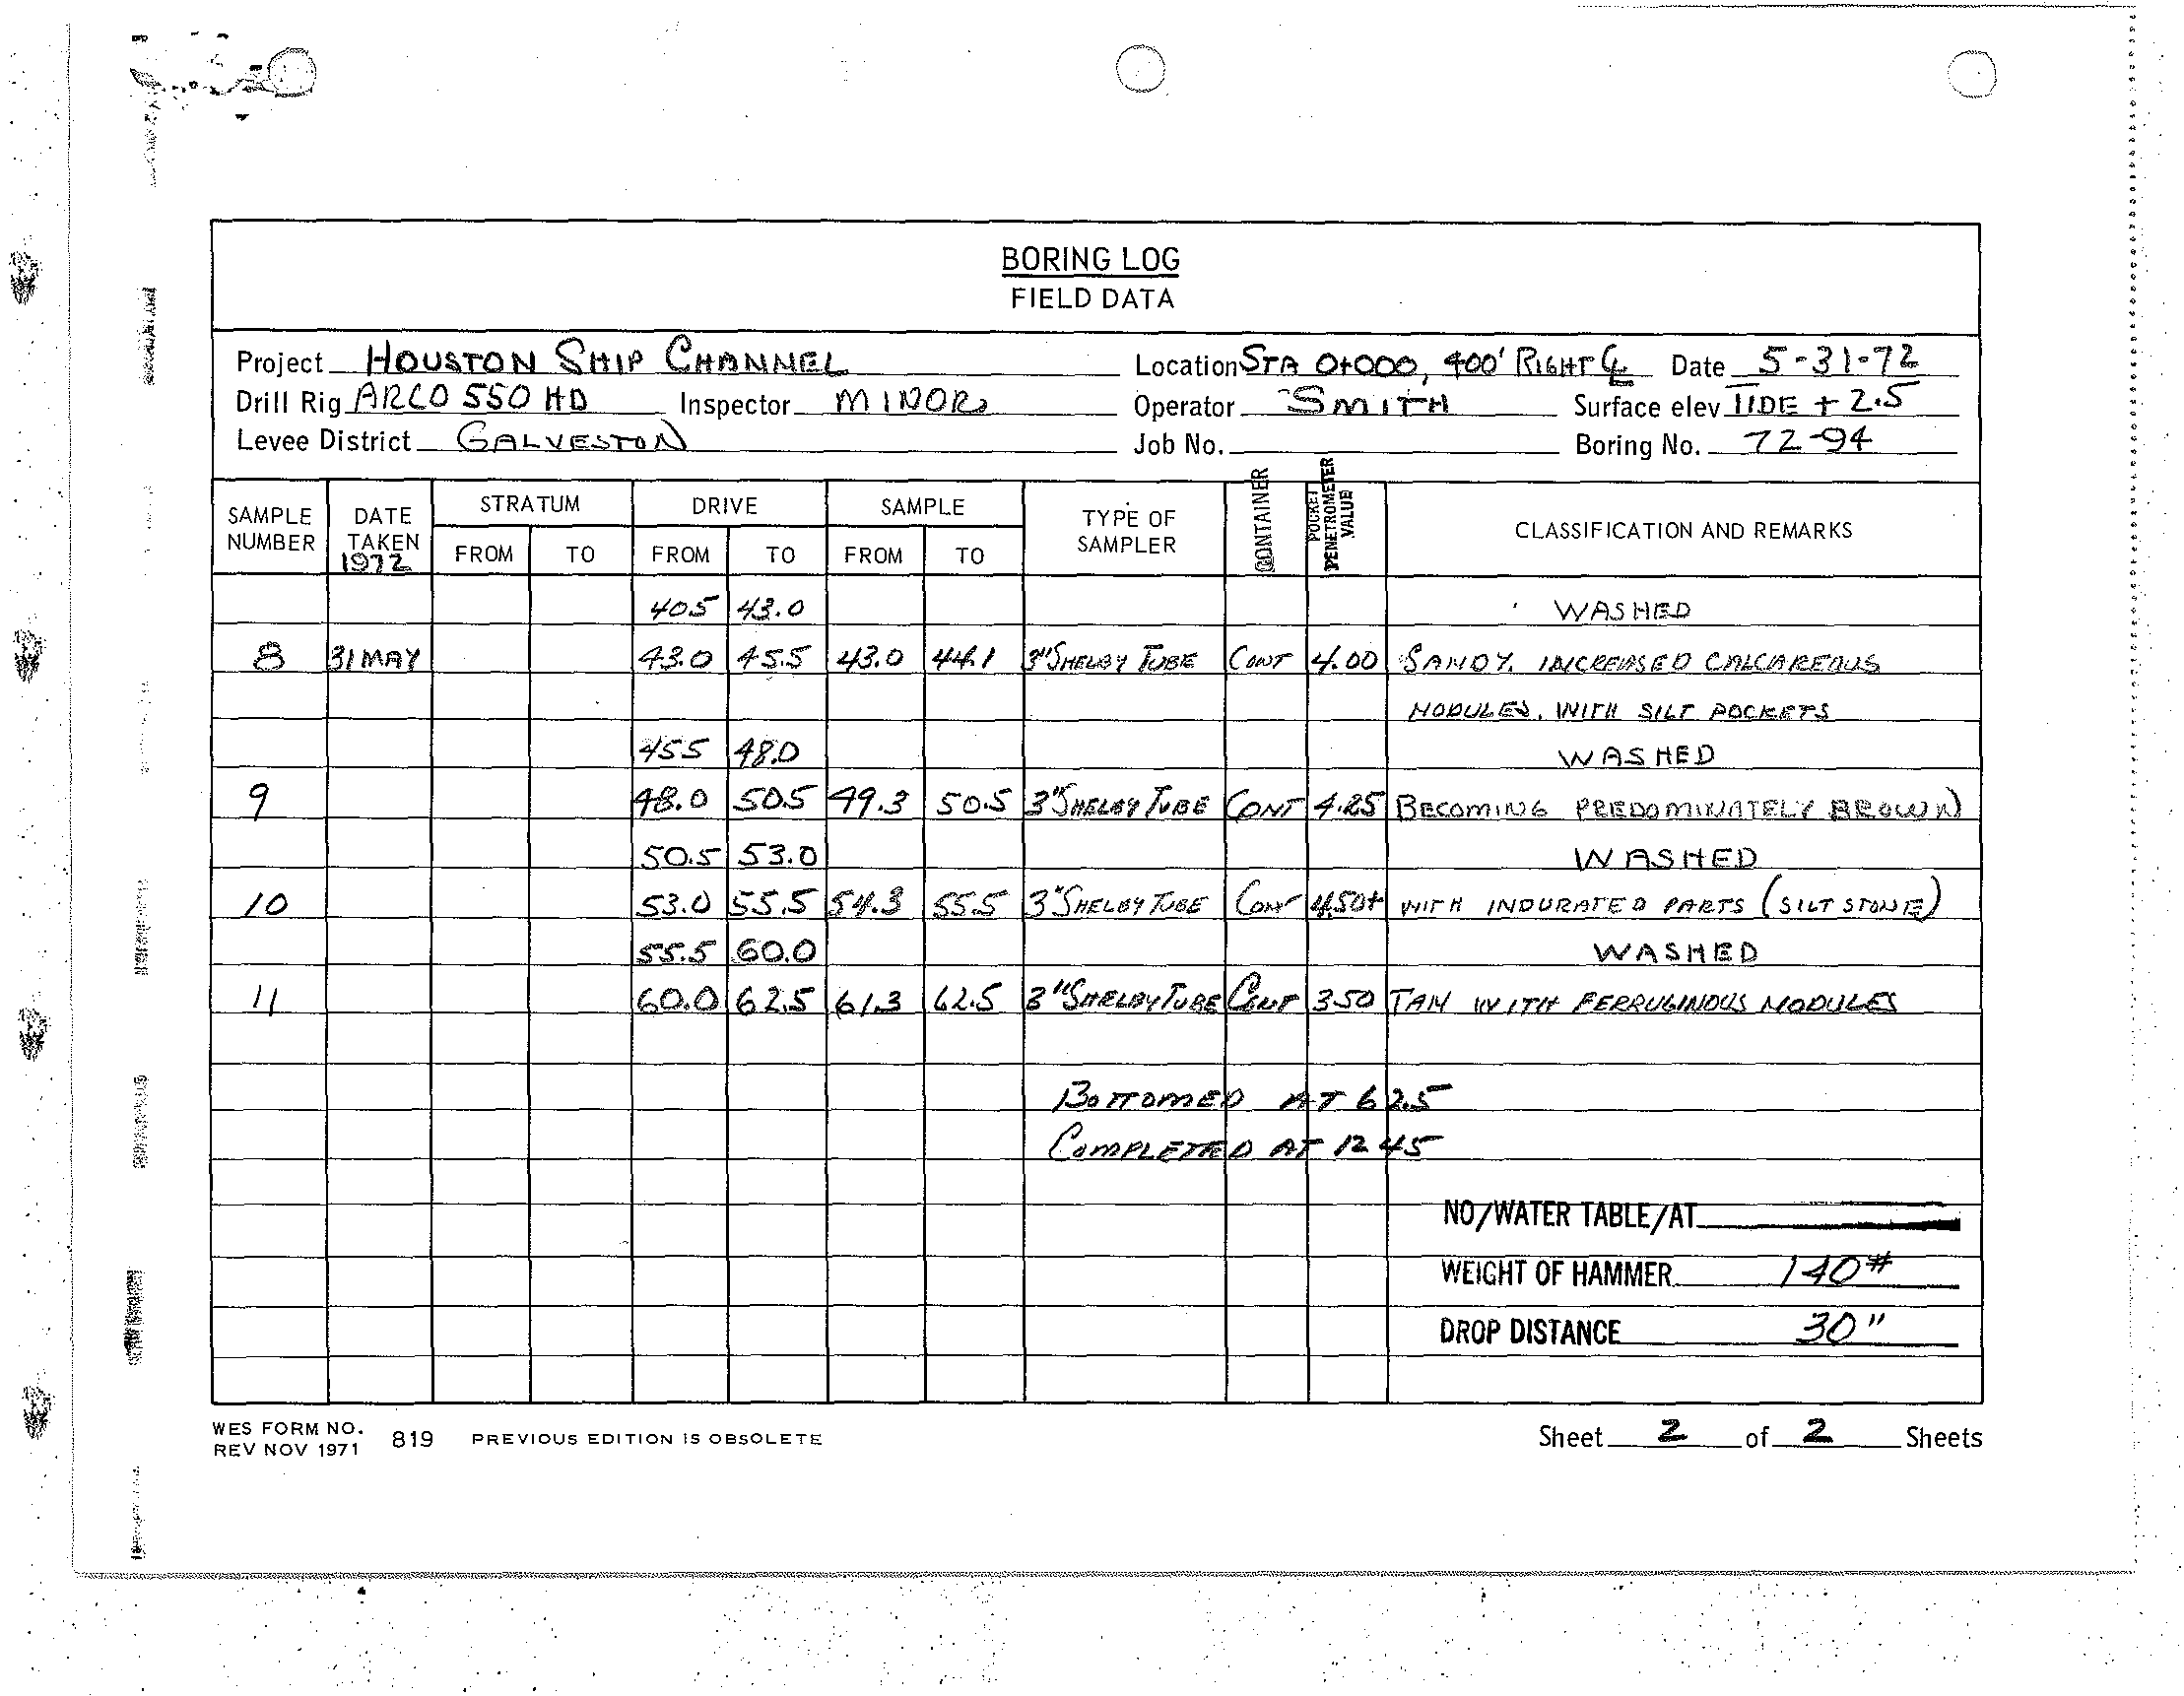 BORING LOG
FIELD DATA
Project HOUSTON SHIP CHANNEL Location STA 0+000, 400' RIGHT ℄ Date 5-31-72
Drill Rig ARCO 550 HD Inspector MINOR Operator SMITH Surface elev TIDE + 2.5
Levee District GALVESTON Job No. Boring No. 72-94
SAMPLE NUMBER DATE TAKEN 1972 STRATUM FROM TO DRIVE FROM TO SAMPLE FROM TO TYPE OF SAMPLER CONTAINER POCKET PENETROMETER VALUE CLASSIFICATION AND REMARKS
40.5 43.0 WASHED
8 31 MAY 43.0 45.5 43.0 44.1 3" SHELBY TUBE CONT 4.00 SANDY. INCREASED CALCAREOUS
NODULES. WITH SILT POCKETS
45.5 48.0 WASHED
9 48.0 50.5 49.3 50.5 3" SHELBY TUBE CONT 4.25 BECOMING PREDOMINATELY BROWN
50.5 53.0 WASHED
10 53.0 55.5 54.3 55.5 3" SHELBY TUBE CONT 4.50+ WITH INDURATED PARTS (SILT STONE)
55.5 60.0 WASHED
11 60.0 62.5 61.3 62.5 3" SHELBY TUBE CONT 3.50 TAN WITH FERRUGINOUS NODULES
BOTTOMED AT 62.5
COMPLETED AT 1245
NO/WATER TABLE/AT
WEIGHT OF HAMMER 140#
DROP DISTANCE 30"
WES FORM NO. 819 PREVIOUS EDITION IS OBSOLETE
REV NOV 1971
Sheet 2 of 2 Sheets